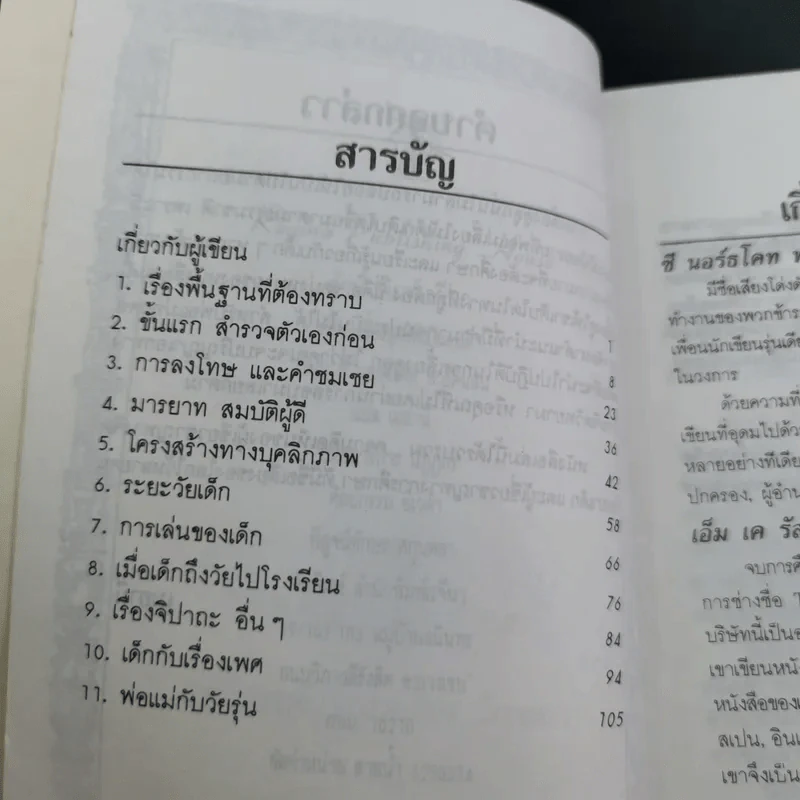 สารบัญ
เกี่ยวกับผู้เขียน
1. เรื่องพื้นฐานที่ต้องทราบ 1
2. ขั้นแรก สำรวจตัวเองก่อน 8
3. การลงโทษ และคำชมเชย 23
4. มารยาท สมบัติผู้ดี 36
5. โครงสร้างทางบุคลิกภาพ 42
6. ระยะวัยเด็ก 58
7. การเล่นของเด็ก 66
8. เมื่อเด็กถึงวัยไปโรงเรียน 76
9. เรื่องจิปาถะ อื่น ๆ 84
10. เด็กกับเรื่องเพศ 94
11. พ่อแม่กับวัยรุ่น 105
ซี นอร์ธโคท
มีชื่อเสียงโด่งดัง
ทำงานของพวกข้าราช
เพื่อนนักเขียนรุ่นเดีย
ในวงการ
ด้วยความที่
เขียนที่อุดมไปด้ว
หลายอย่างทีเดีย
ปกครอง, ผู้อำน
เอ็ม เค รัส
จบการศึ
การช่างชื่อ
บริษัทนี้เป็นอ
เขาเขียนหนั
หนังสือของเ
สเปน, อินเ
เขาจึงเป็น